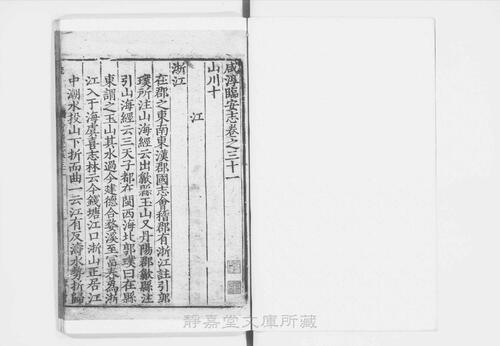 咸淳臨安志卷之三十一
山川十
江
浙江
在郡之東南東漢郡國志會稽郡有浙江註引郭
璞所注山海經云出歙縣玉山又丹陽郡歙縣注
引山海經云三天子都在閩西海北郭璞曰在縣
東謂之玉山其水過今建德合婺溪至富春為浙
江入于海虞喜志林云今錢塘江口浙山正居江
中潮水投山下折而曲一云江有反濤水勢折歸
靜嘉堂文庫所藏